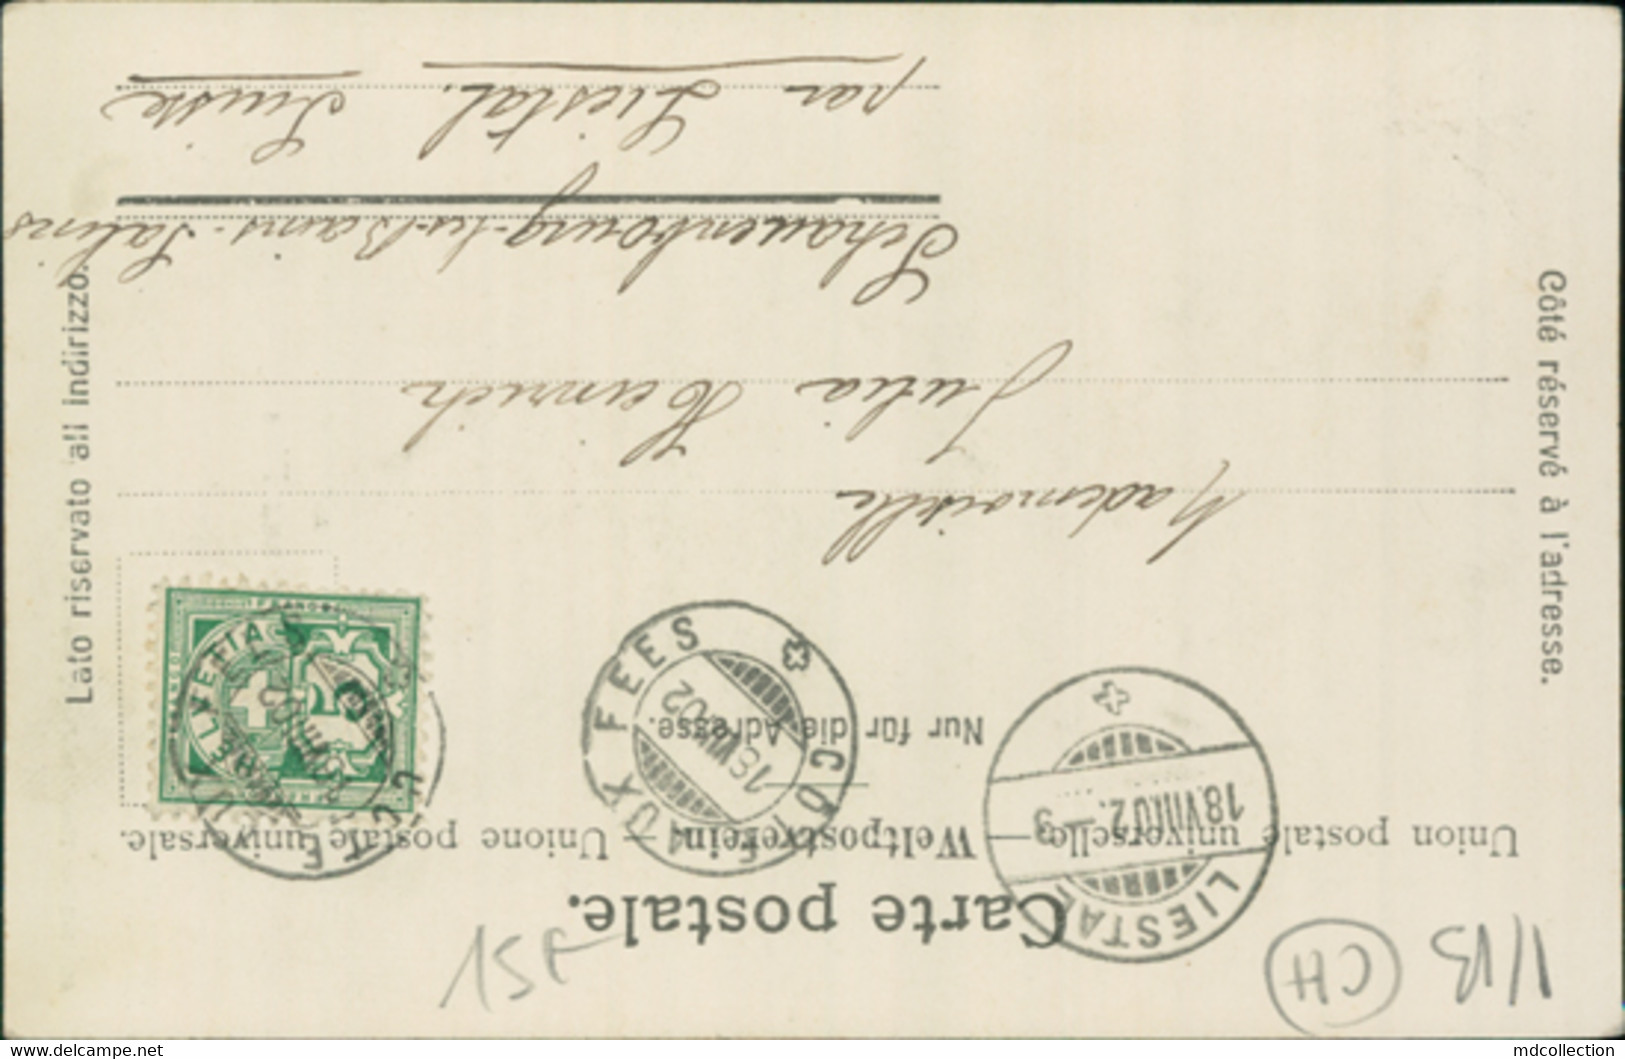 1/13 CH 15F
Carte postale.
Union postale universelle — Weltpostverein — Unione postale universale.
Nur für die Adresse.
Côté réservé à l'adresse.
Lato riservato all indirizzo.
LIESTAL
18.VIII.02.–3
CÔTE AUX FÉES
18.VIII.02
HELVETIA
FRANCO
5
Mademoiselle
Julia Heinrich
Schauenbourg-les-Bains-Salins
par Liestal. Suisse
www.delcampe.net
mdcollection